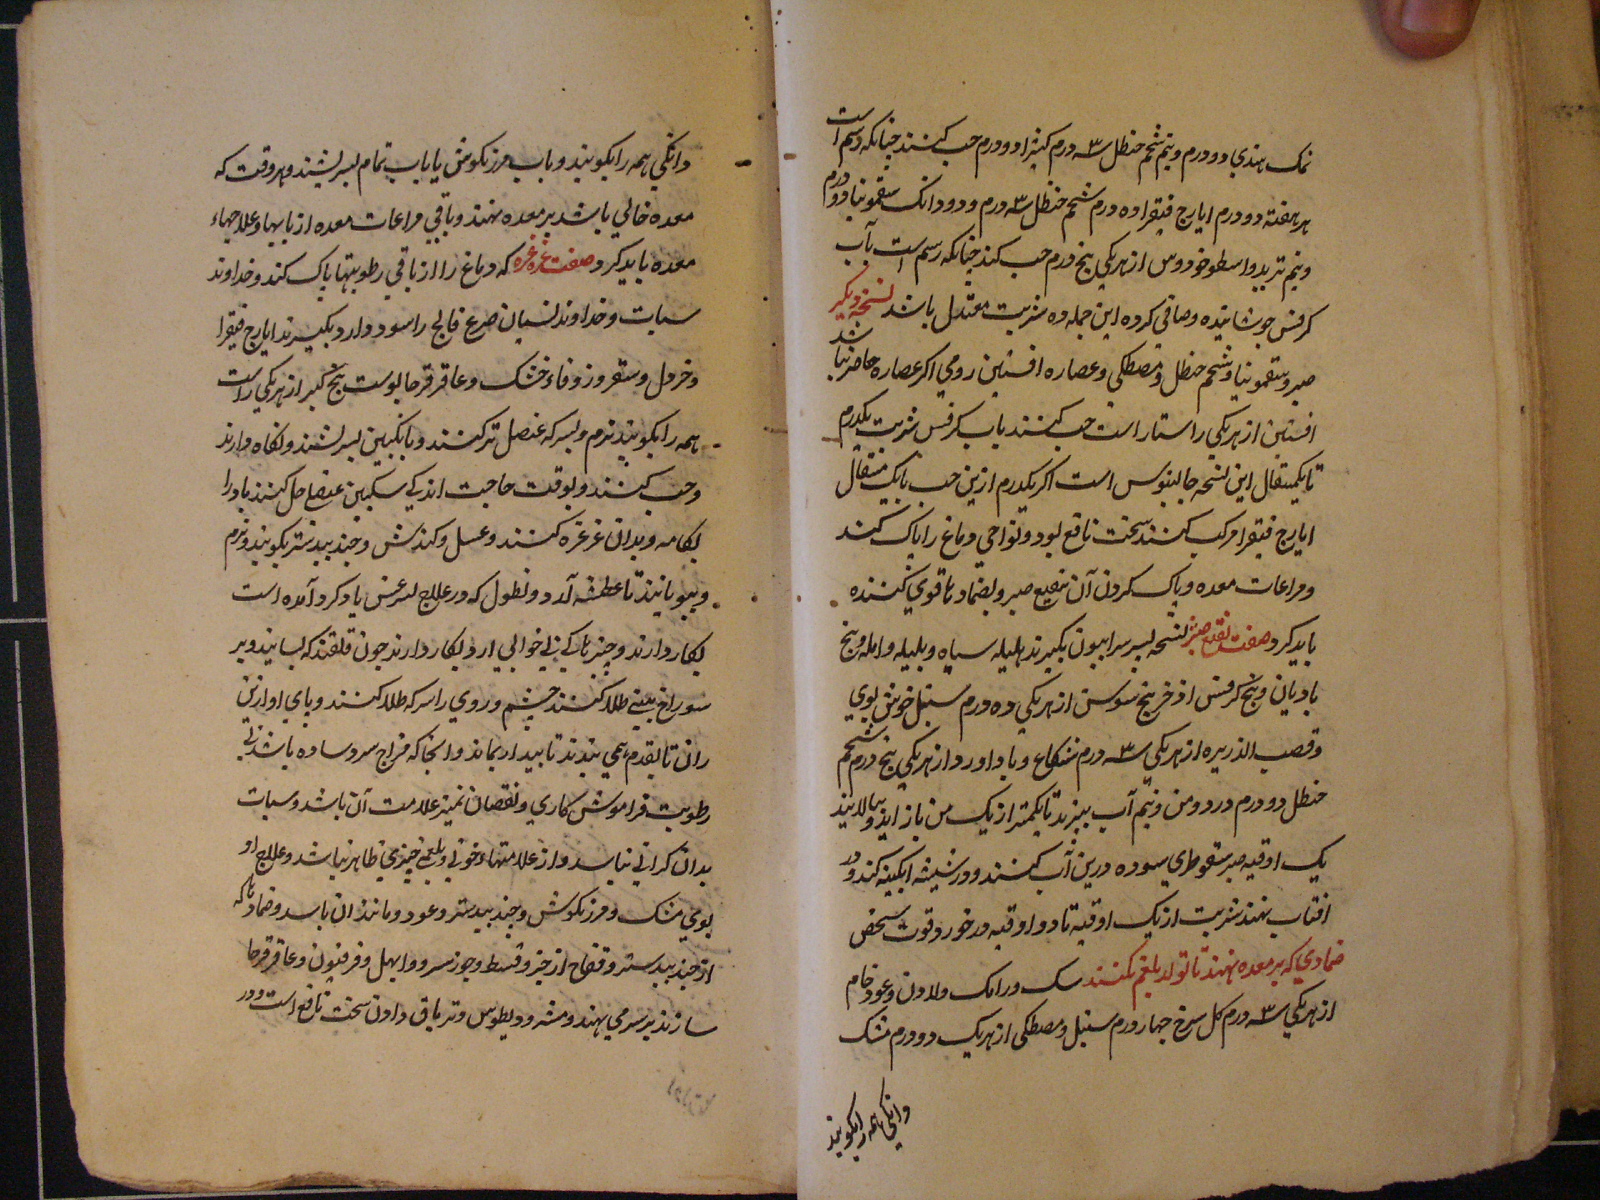 نمک هندی دو درم و نیم شحم حنظل ۳ سه درم کثیرا دو درم حب کنند چنانکه رسم است
هر هفته دو درم ایارج فیقرا ده درم شحم حنظل ۳ سه درم و دو دانک سقمونیا دو درم
و نیم تربد و اسطوخودوس از هریکی پنج درم حب کند چنانکه رسم است بآب
کرفس جوشانیده و صافی کرده این جمله ده شربت معتدل باشد نسخه دیکر
صبر و سقمونیا و شحم حنظل و مصطکی و عصاره افسنتین رومی اکر عصاره حاضر نباشد
افسنتین از هریکی راستا راست حب کنند بآب کرفس شربت یکدرم
تا یکمثقال این نسخه جالینوس است اکر یکدرم ازین حب با یک مثقال
ایارج فیقرا مرکب کنند سخت نافع بود و نواحی دماغ را پاک کند
و مراعات معده و پاک کردن آن بنقیع صبر و بضمادها قوی کننده
باید کرد صفت نقیع صبر نسخه پسر سرابیون بکیرند هلیله سیاه و بلیله و امله و بیخ
بادیان و بیخ کرفس اذخر بیخ سوسن از هریکی ده درم سنبل خوش بوی
و قصب الذریره از هریکی ۳ سه درم شکاع و باداورد از هریکی پنج درم شحم
حنظل دو درم در دو من و نیم آب بپزند تا بکمتر از یک من باز اید و بپالایند
یک اوقیه صبر سقوطری سوده درین آب کنند و در شیشه ابکینه کند و در
افتاب بنهند شربت از یک اوقیه تا دو اوقیه در خورد قوت شخص
ضمادی که بر معده نهند تا تولد بلغم نکنند سک و رامک و لادن و عود خام
از هریکی ۳ سه درم کل سرخ چهار درم سنبل و مصطکی از هریک دو درم مشک
دانکی همه را بکوبند
دانکی همه را بکوبند و بآب مرزنکوش یا بآب تمام بسرشند و هر وقت که
معده خالی باشد بر معده نهند و باقی مراعات معده از بابها و علاجهاء
معده باید کرد صفت غرغره که دماغ را از باقی رطوبتها پاک کند و خداوند
سبات و خداوند نسیان صرع فالج را سود دارد بکیرند ایارج فیقرا
و خردل و سعتر و زوفاء خشک و عاقرقرحا پوست بیخ کبر از هریکی راست
همه را بکوبند نرم و بسرکه عنصل تر کنند و بانکبین بسرشند و نکاه دارند
و حب کنند و بوقت حاجت اندکی سکبین عنصل حل کنند یا در ا
بکامه و بدان غرغره کنند و عسل و کندش و جندبیدستر بکوبند نرم
و ببویانند تا عطسه آرد و نطول که در علاج لیثرغس یاد کرده آمده است
بکار دارند و چیزهاء کی بی خوابی ارد بکار دارند چون قلقند که بسایند و بر
سوراخ بینی طلا کنند چشم و روی را سرکه طلا کنند و پای او از بن
ران تا بقدم همی بندند تا بیدار بماند و انجا که مزاج سرد ساده باشد بی
رطوبت فراموش کاری و نقصان تمیز علامت آن باشد و سبات
بدان کرانی نباشد و از علامتهاء خونی و بلغمی چیزی ظاهر نباشد و علاج او
بوی مشک و مرزنکوش و جندبیدستر و عود و مانند ان باشد و ضمادها که
از جندبیدستر و فقاح اذخر و قسط و جوز سرو و ابهل و فرفیون و عاقرقرحا
سازند بر سر می نهند و مثرودیطوس و تریاق دادن سخت نافع است و در